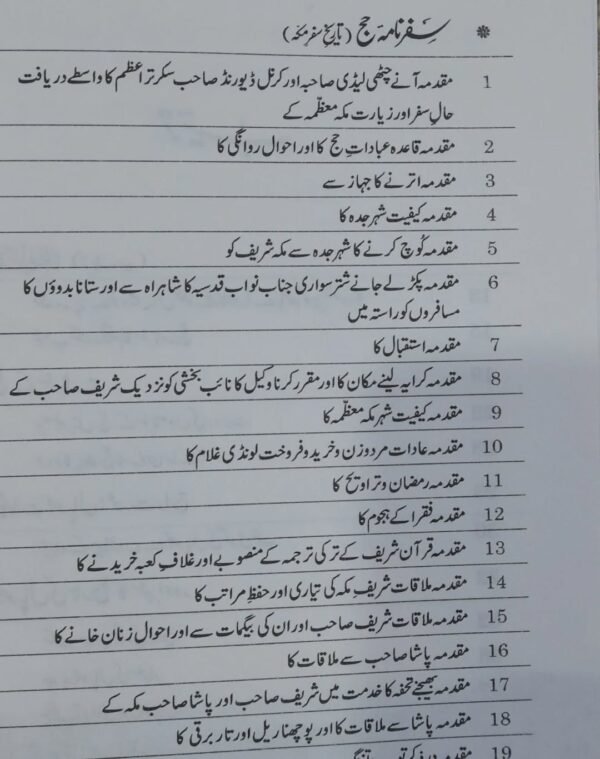 * سفرنامۂ حج (تاریخِ سفرِ مکہ)
1 مقدمہ آنے چٹھی لیڈی صاحبہ اور کرنل ڈیورنڈ صاحب سکرتر اعظم کا واسطے دریافت
حالِ سفر اور زیارت مکہ معظّمہ کے
2 مقدمہ قاعدہ عباداتِ حج کا اور احوال روانگی کا
3 مقدمہ اترنے کا جہاز سے
4 مقدمہ کیفیت شہر جدہ کا
5 مقدمہ کُوچ کرنے کا شہر جدہ سے مکہ شریف کو
6 مقدمہ پکڑ لے جانے شتر سواری جناب نواب قدسیہ کا شاہراہ سے اور ستانا بدوؤں کا
مسافروں کو راستہ میں
7 مقدمہ استقبال کا
8 مقدمہ کرایہ لینے مکان کا اور مقرر کرنا وکیل کا نائب بخشی کو نزدیک شریف صاحب کے
9 مقدمہ کیفیت شہر مکہ معظّمہ کا
10 مقدمہ عادات مرد و زن و خرید و فروخت لونڈی غلام کا
11 مقدمہ رمضان و تراویح کا
12 مقدمہ فقرا کے ہجوم کا
13 مقدمہ قرآن شریف کے ترکی ترجمہ کے منصوبے اور غلافِ کعبہ خریدنے کا
14 مقدمہ ملاقات شریفِ مکہ کی تیاری اور حفظِ مراتب کا
15 مقدمہ ملاقات شریف صاحب اور ان کی بیگمات سے اور احوال زنان خانے کا
16 مقدمہ پاشا صاحب سے ملاقات کا
17 مقدمہ بھیجنے تحفہ کا خدمت میں شریف صاحب اور پاشا صاحب مکہ کے
18 مقدمہ پاشا سے ملاقات کا اور پوچھنا ریل اور تار برقی کا
19 مقدمہ